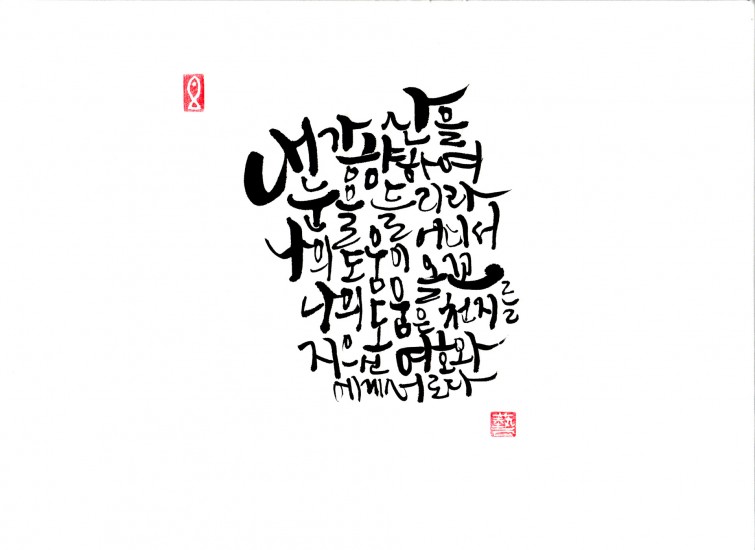 내가 산을
향하여
눈을 들리라
나의 도움이 어디서 올꼬
나의 도움은 천지를
지으신 여호와
에게서로다